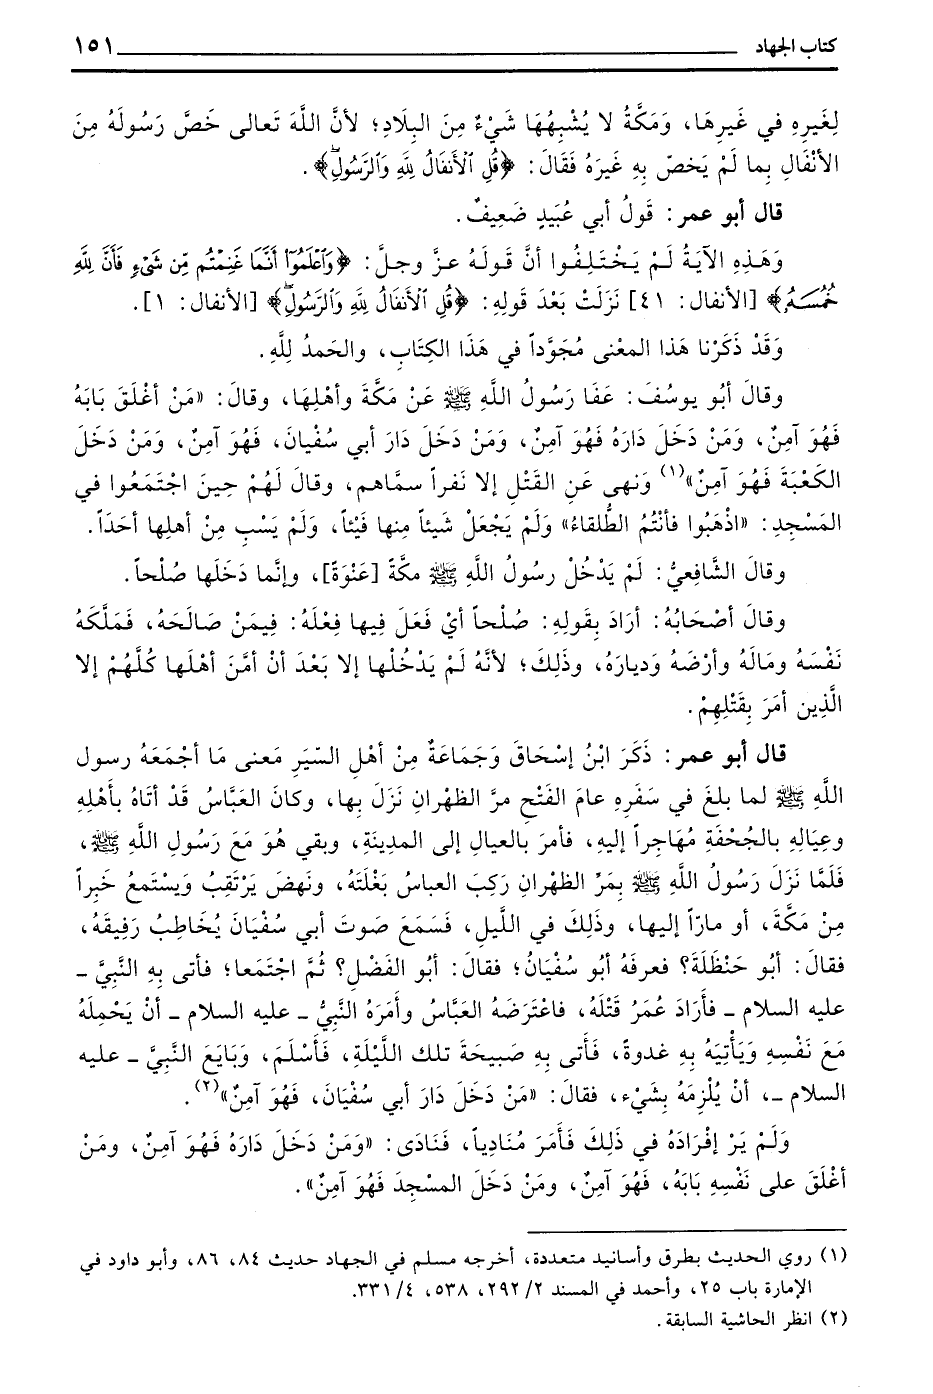 كتاب الجهاد ١٥١
لِغَيرِهِ في غَيرِهَا، وَمَكَّةُ لا يُشْبِهُهَا شَيْءٌ مِنَ البِلَادِ؛ لأنَّ اللَّهَ تَعالى خَصَّ رَسُولَهُ مِنَ
الأنْفَالِ بِما لَمْ يَخصّ بِهِ غَيرَهُ فَقَالَ: ﴿قُلِ ٱلْأَنفَالُ لِلَّهِ وَٱلرَّسُولِ﴾.
قال أبو عمر: قَولُ أبي عُبَيدٍ ضَعِيفٌ.
وَهَذِهِ الآيَةُ لَمْ يَخْتَلِفُوا أنَّ قَولَهُ عزَّ وجلَّ: ﴿وَٱعْلَمُوٓا۟ أَنَّمَا غَنِمْتُم مِّن شَىْءٍ فَأَنَّ لِلَّهِ
خُمُسَهُۥ﴾ [الأنفال: ٤١] نَزَلَتْ بَعْدَ قَولِهِ: ﴿قُلِ ٱلْأَنفَالُ لِلَّهِ وَٱلرَّسُولِ﴾ [الأنفال: ١].
وَقَدْ ذَكَرْنا هَذا المعْنى مُجَوَّداً في هَذَا الكِتَابِ، والحَمدُ لِلَّهِ.
وقالَ أبُو يوسُفَ: عَفَا رَسُولُ اللَّهِ ﷺ عَنْ مَكَّةَ وأهْلِهَا، وقالَ: «مَنْ أغْلَقَ بَابَهُ
فَهُوَ آمِنٌ، وَمَنْ دَخَلَ دَارَهُ فَهُوَ آمِنٌ، وَمَنْ دَخَلَ دَارَ أبي سُفْيانَ، فَهُوَ آمِنٌ، وَمَنْ دَخَلَ
الكَعْبَةَ فَهُوَ آمِنٌ»(١) وَنهى عَنِ القَتْلِ إلا نَفراً سمَّاهم، وقالَ لَهُمْ حِينَ اجْتَمَعُوا في
المَسْجِدِ: «اذْهَبُوا فأنْتُمُ الطُّلقاءُ» وَلَمْ يَجْعَلْ شَيئاً مِنها فَيْئاً، وَلَمْ يَسْبِ مِنْ أهلِها أحَدَاً.
وقالَ الشَّافِعيُّ: لَمْ يَدْخُلْ رسُولُ اللَّهِ ﷺ مكَّةَ [عَنْوَةً]، وإنَّما دَخَلَها صُلْحاً.
وقالَ أصْحَابُهُ: أرَادَ بِقَولِهِ: صُلْحاً أيْ فَعَلَ فِيها فِعْلَهُ: فِيمَنْ صَالَحَهُ، فَمَلَّكَهُ
نَفْسَهُ ومَالَهُ وأرْضَهُ وَديارَهُ، وذَلِكَ؛ لأنَّهُ لَمْ يَدْخُلْها إلا بَعْدَ أنْ أمَّنَ أهْلَها كُلَّهُمْ إلا
الَّذِين أمَرَ بِقَتْلِهِمْ.
قال أبو عمر: ذَكَرَ ابْنُ إسْحَاقَ وَجَمَاعَةٌ مِنْ أهْلِ السِّيَرِ مَعنى مَا أجْمَعَهُ رسول
اللَّهِ ﷺ لما بلغَ في سَفَرِهِ عامَ الفَتْحِ مرَّ الظهْرانِ نَزَلَ بِها، وكانَ العَبَّاسُ قَدْ أتَاهُ بأهْلِهِ
وعِيَالِهِ بالجُحْفَةِ مُهَاجِراً إليهِ، فأمرَ بالعيالِ إلى المدِينَةِ، وبقي هُوَ مَعَ رَسُولِ اللَّهِ ﷺ،
فَلَمَّا نَزَلَ رَسُولُ اللَّهِ ﷺ بِمَرِّ الظهْرانِ رَكِبَ العباسُ بَغْلَتَهُ، ونَهضَ يَرْتَقِبُ وَيسْتَمعُ خَبراً
مِنْ مَكَّةَ، أو مارّاً إليها، وذَلِكَ في اللَّيلِ، فَسَمَعَ صَوتَ أبي سُفْيَانَ يُخَاطِبُ رَفِيقَهُ،
فقالَ: أبُو حَنْظَلَةَ؟ فعرفَهُ أبُو سُفْيَانُ؛ فقالَ: أبُو الفَضْلِ؟ ثُمَّ اجْتَمَعا؛ فأتى بِهِ النَّبِيَّ ـ
عليه السلام ـ فَأرَادَ عُمَرُ قَتْلَهُ، فاعْتَرَضَهُ العَبَّاسُ وأمَرَهُ النَّبيُّ ـ عليه السلام ـ أنْ يَحْمِلَهُ
مَعَ نَفْسِهِ وَيَأْتِيَهُ بِهِ غدوةً، فَأتى بِهِ صَبِيحَةَ تلك اللَّيْلَةِ، فَأَسْلَمَ، وَبَايَعَ النَّبيَّ ـ عليه
السلام ـ، أنْ يُلْزِمَهُ بِشَيْء، فقالَ: «مَنْ دَخَلَ دَارَ أبي سُفْيَانَ، فَهُوَ آمِنٌ»(٢).
وَلَمْ يَرَ إفْرَادَهُ في ذَلِكَ فَأَمَرَ مُنَادِياً، فَنَادَى: «وَمَنْ دَخَلَ دَارَهُ فَهُوَ آمِنٌ، ومَنْ
أغْلَقَ على نَفْسِهِ بَابَهُ، فَهُوَ آمِنٌ، ومَنْ دَخَلَ المسْجِدَ فَهُوَ آمِنٌ».
(١) روي الحديث بطرق وأسانيد متعددة، أخرجه مسلم في الجهاد حديث ٨٤، ٨٦، وأبو داود في
الإمارة باب ٢٥، وأحمد في المسند ٢/ ٢٩٢، ٥٣٨، ٤/ ٣٣١.
(٢) انظر الحاشية السابقة.